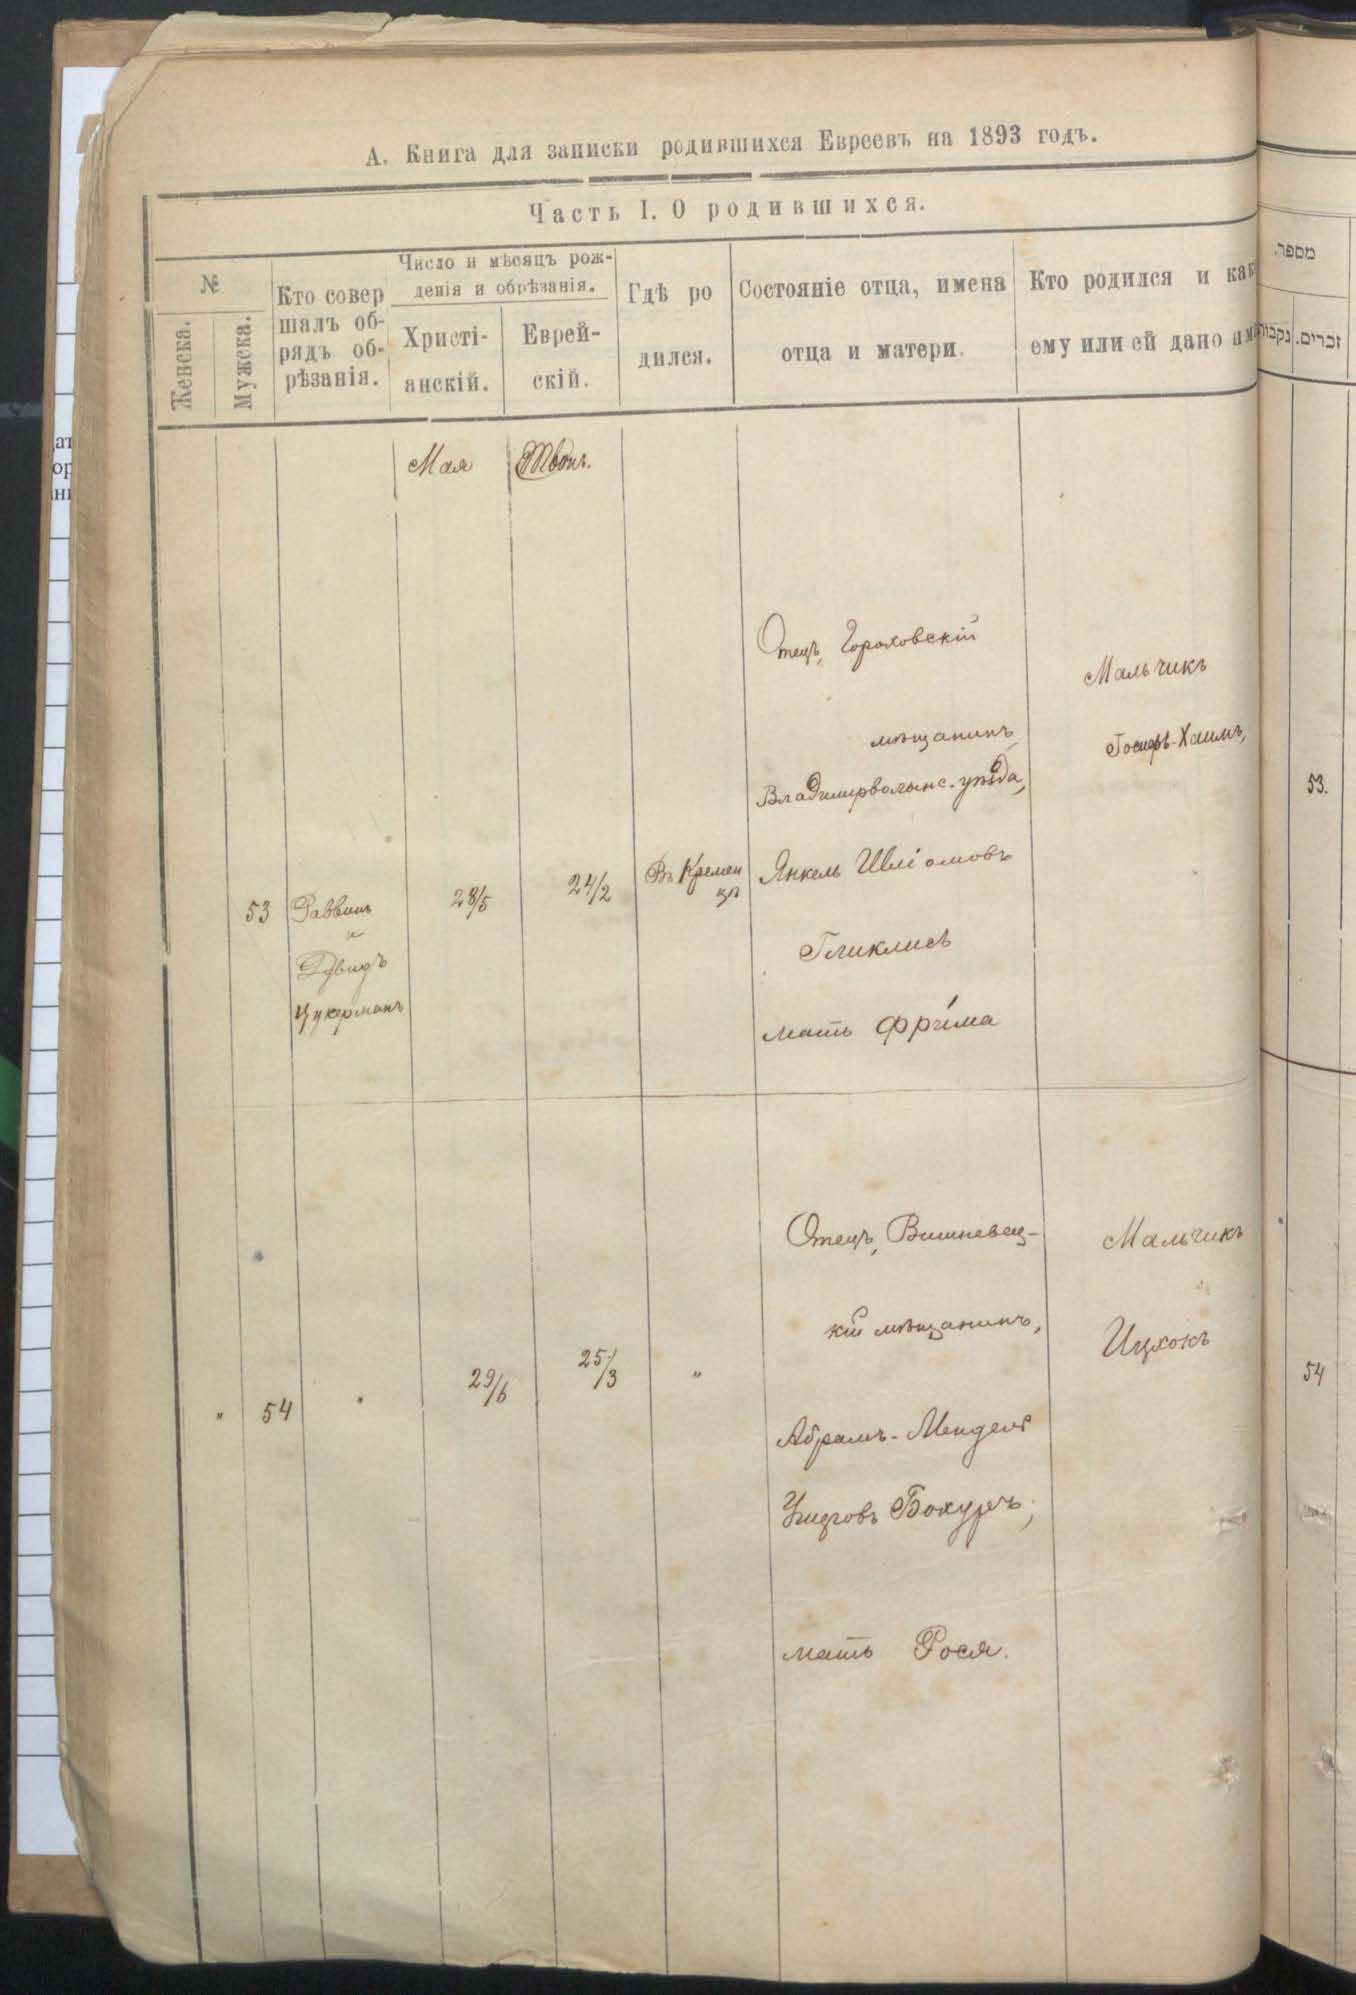 А. Книга для записки родившихся Евреевъ на 1893 годъ.
Часть I. О родившихся.
№
Женска.
Мужска.
Кто совер
шалъ об-
рядъ об-
рѣзанія.
Число и мѣсяцъ рож-
денія и обрѣзанія.
Христі-
анскій.
Еврей-
скій.
Гдѣ ро
дился.
Состояніе отца, имена
отца и матери.
Кто родился и как
ему или ей дано им
Мая
53
Раввинъ
и
Дувидъ
Цукерманъ
28/5
24/2
Въ Кремен
цѣ
Отецъ, Гороховскій
мѣщанинъ,
Владимирволынс. уѣзда,
Янкель Шліомовъ
Гликлисъ
мать Фрима
Мальчикъ
Хаимъ,
"
54
"
29/6
25/3
"
Отецъ, Вишневец-
кій мѣщанинъ,
Абрамъ-Мендель
Бокуръ,
мать Рося.
Мальчикъ
Ицхокъ
מספר.
זכרים.
נקבות
53.
54